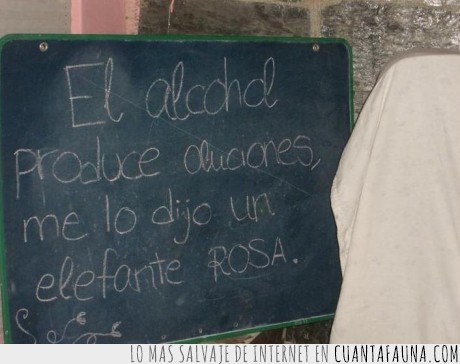 El alcohol
produce aluciones,
me lo dijo un
elefante ROSA.
LO MAS SALVAJE DE INTERNET EN CUANTAFAUNA.COM